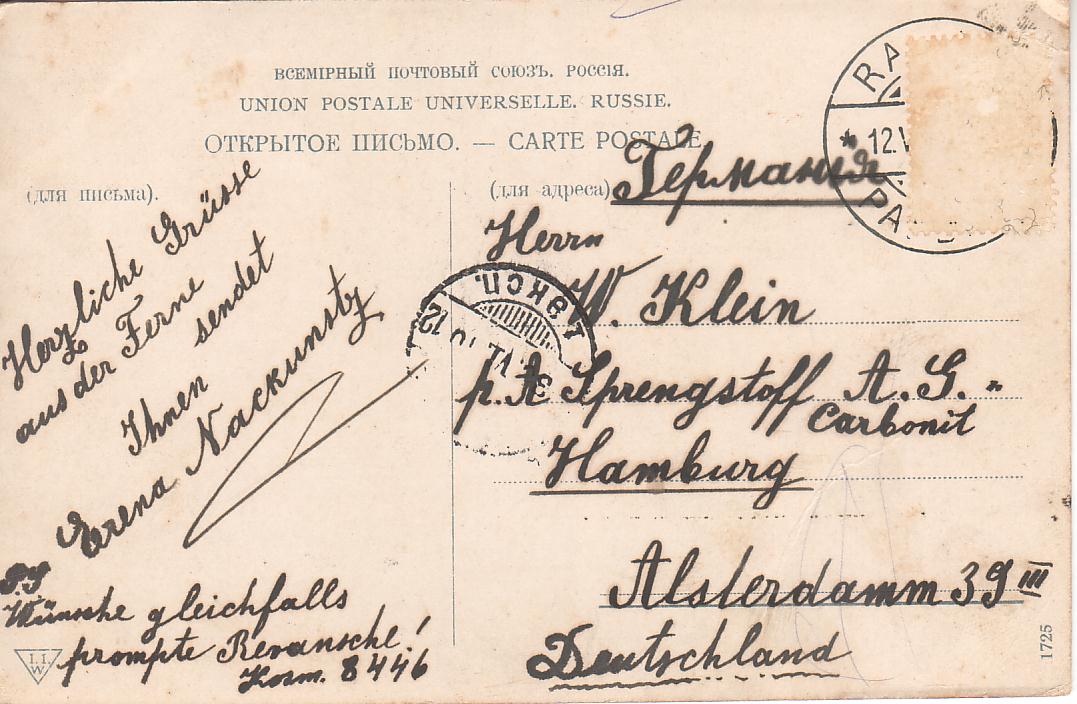 ВСЕМІРНЫЙ ПОЧТОВЫЙ СОЮЗЪ. РОССІЯ.
UNION POSTALE UNIVERSELLE. RUSSIE.
ОТКРЫТОЕ ПИСЬМО. — CARTE POSTALE
(для письма).
(для адреса)
Herzliche Grüsse
aus der Ferne
sendet
Ihnen
Erena Nackunstz
P.S
Wünsche gleichfalls
prompte Revansche!
Kosm. 8446
Германія
Herrn
W. Klein
p. A Sprengstoff A. G. "
Carbonit
Hamburg
Alsterdamm 39 III
Deutschland
RA
* 12.V
PA
1 ЭКСП.
I.I.
W.
1725